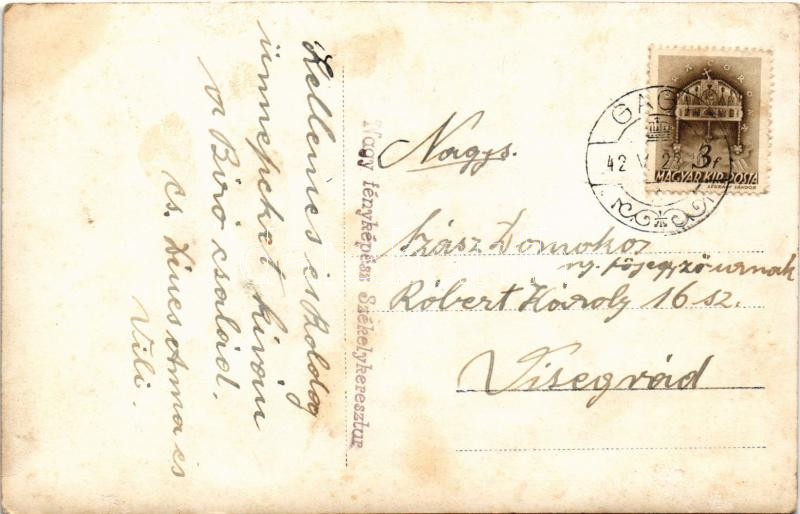 Kellemes és boldog
ünnepeket kíván
a Biró család.
cs. Dines Anna és
Vili.
Nagy fényképész Székelykeresztur
Nagys.
Szász Domokos
ny. főjegyző urnak
Róbert Károly 16 sz.
Visegrád
GAGY
42 V 23
3f
MAGYAR KIR. POSTA